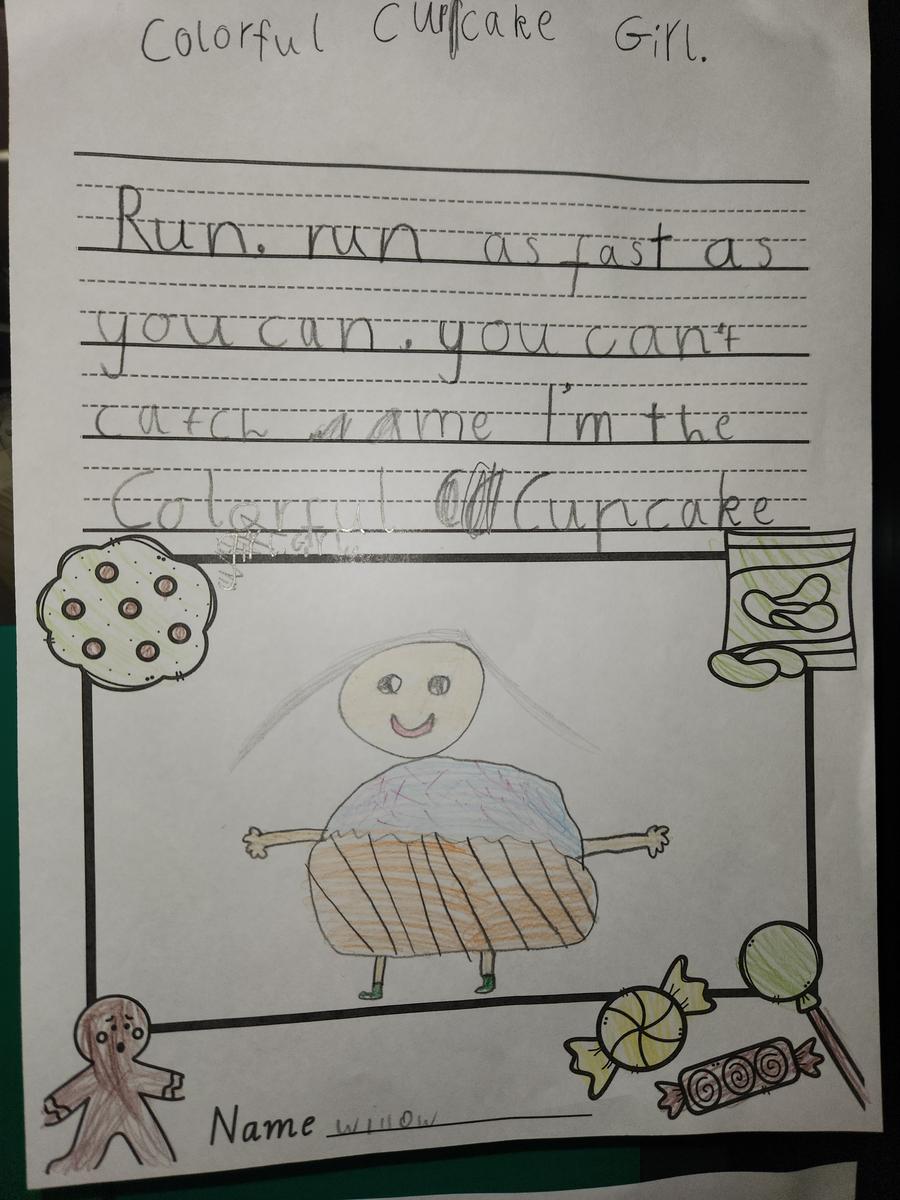 Colorful Cupcake Girl.
Run. run as fast as
you can. you can't
catch me I'm the
Colorful Cupcake
Girl.
Name willow